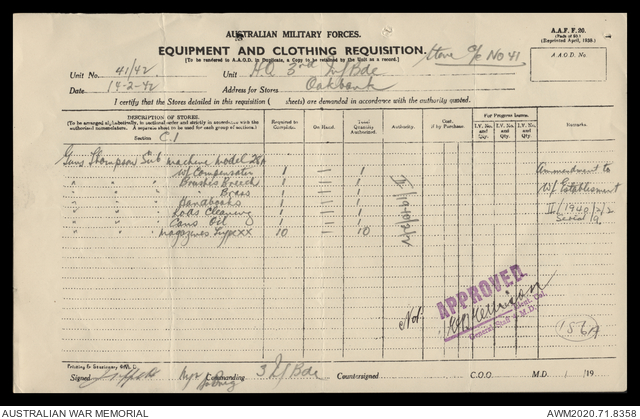 AUSTRALIAN MILITARY FORCES.
A.A.F. F.26.
(Pads of 50.)
(Reprinted April, 1938.)
EQUIPMENT AND CLOTHING REQUISITION.
Store No 41
[To be rendered to A.A.O.D. in Duplicate, a Copy to be retained by the Unit as a record.]
A.A.O.D. No.
Unit No. 41/42 Unit H.Q. 3rd Inf Bde
Date 14-2-42 Address for Stores Oakbank
I certify that the Stores detailed in this requisition ( sheets) are demanded in accordance with the authority quoted.
DESCRIPTION OF STORES.
(To be arranged alphabetically, in sectional order and strictly in accordance with the authorised nomenclature. A separate sheet to be used for each group of sections.)
Section C.1
Required to Complete.
On Hand.
Total Quantity Authorised.
Authority.
Cost, if by Purchase.
For Progress Issues.
I.V. No. and Qty.
I.V. No. and Qty.
I.V. No. and Qty.
Remarks.
Guns Thompson Sub machine model 28
W/ Compensator 1 1
" " " Brushes Breech 1 1
" " " " Brass 1 1
" " " Handbooks 1 1
" " " Rods Cleaning 1 1
" " " Cans Oil 1 1
" " " Magazines Type XX 10 10
II/1940/2/2
Ammendment to
W/ Establishment
II/1940/2/2
Serial 9.
APPROVED
General Staff 4 M.D.
156A
Printing & Stationery
Signed Commanding 3 Inf Bde Countersigned C.O.O. M.D. / /19
AUSTRALIAN WAR MEMORIAL
AWM2020.71.8358